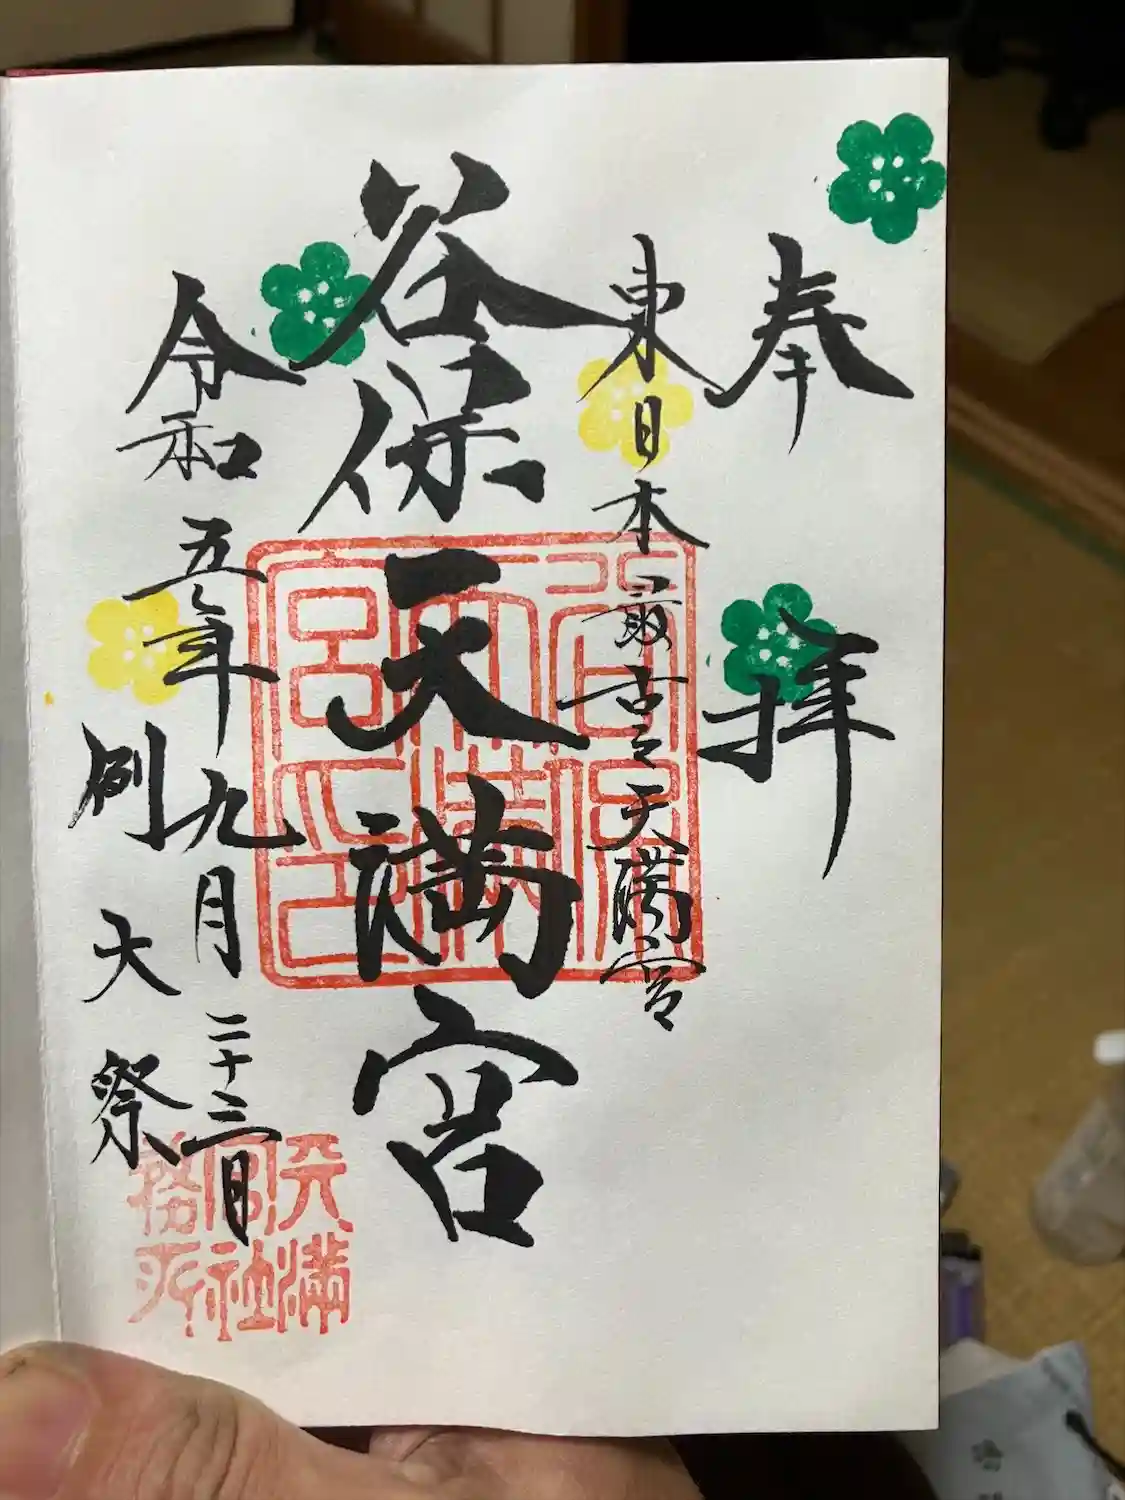 奉拝
東日本最古之天満宮
谷保天満宮
令和五年九月二十三日
例大祭
谷保
天満
宮印
天満
宮社
務所